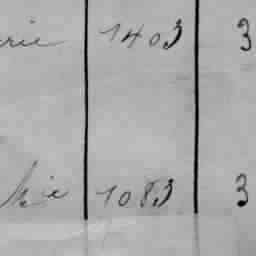 rie 1403 3
hie 1083 3